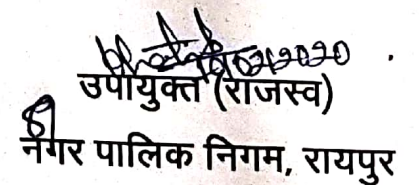 उपायुक्त (राजस्व)
नगर पालिक निगम, रायपुर